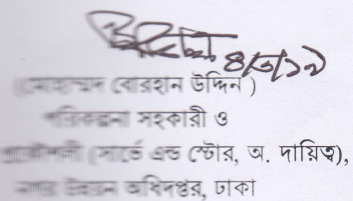 ৪/৩/১৯
(মোহাম্মদ বোরহান উদ্দিন )
পরিকল্পনা সহকারী ও
(সার্ভে এন্ড স্টোর, অ. দায়িত্ব),
নগর উন্নয়ন অধিদপ্তর, ঢাকা